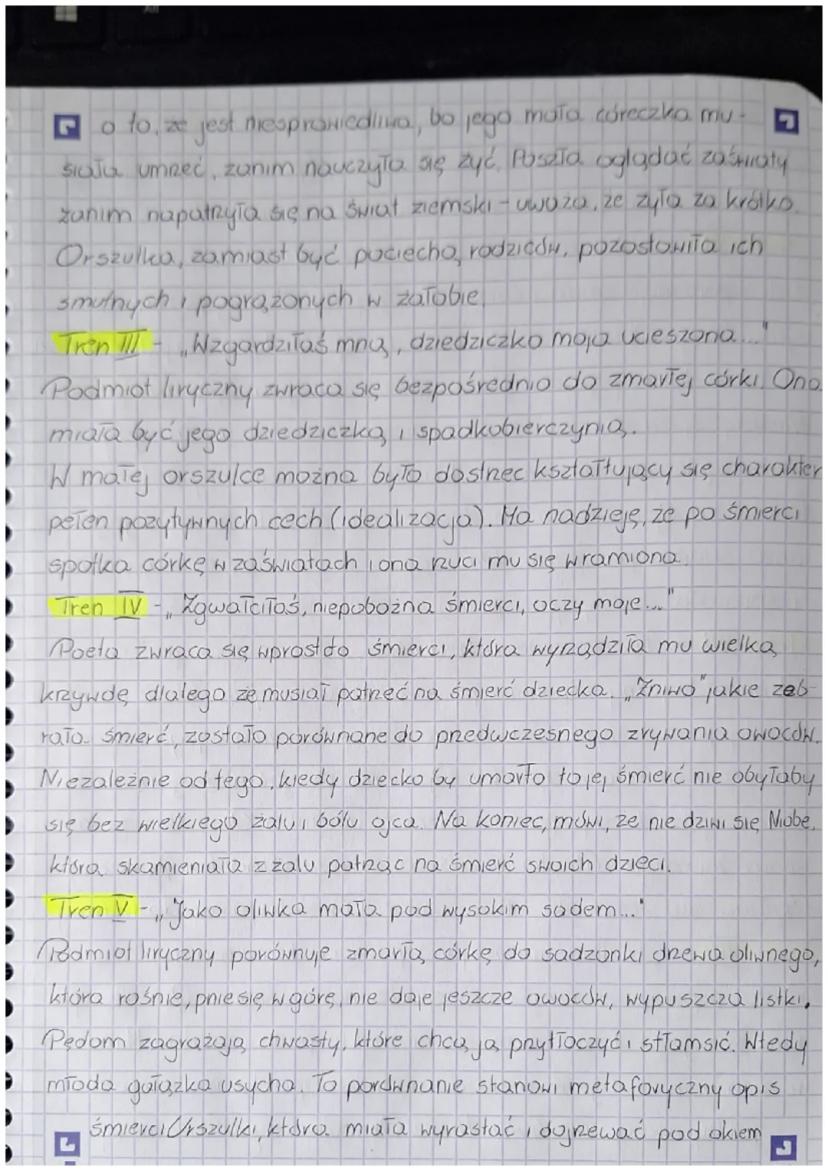 o to, że jest niesprawiedliwa, bo jego mała córeczka mu-
siała umrzeć, zanim nauczyła się żyć. Poszła oglądać zaświaty
zanim napatrzyła się na świat ziemski - uważa, że żyła za krótko.
Orszulka, zamiast być pociechą rodziców, pozostawiła ich
smutnych i pogrążonych w żałobie.
Tren III - „Wzgardziłaś mną, dziedziczko moja ucieszona..."
Podmiot liryczny zwraca się bezpośrednio do zmarłej córki. Ona
miała być jego dziedziczką i spadkobierczynią.
W małej orszulce można było dostrzec kształtujący się charakter
pełen pozytywnych cech (idealizacja). Ma nadzieję, że po śmierci
spotka córkę w zaświatach i ona rzuci mu się w ramiona.
Tren IV - „Zgwałciłaś, niepobożna śmierci, oczy moje..."
Poeta zwraca się wprost do śmierci, która wyrządziła mu wielką
krzywdę, dlatego że musiał patrzeć na śmierć dziecka. „Żniwo" jakie zeb-
rała śmierć, zostało porównane do przedwczesnego zrywania owoców.
Niezależnie od tego, kiedy dziecko by umarło to jej śmierć nie obyłaby
się bez wielkiego żalu i bólu ojca. Na koniec, mówi, że nie dziwi się Niobe,
która skamieniała z żalu patrząc na śmierć swoich dzieci.
Tren V - „Jako oliwka mała pod wysokim sadem..."
Podmiot liryczny porównuje zmarłą córkę do sadzonki drzewa oliwnego,
która rośnie, pnie się w górę, nie daje jeszcze owoców, wypuszcza listki.
Pędom zagrażają chwasty, które chcą ją przytłoczyć i stłamsić. Wtedy
młoda gałązka usycha. To porównanie stanowi metaforyczny opis
śmierci Urszulki, która miała wyrastać i dojrzewać pod okiem